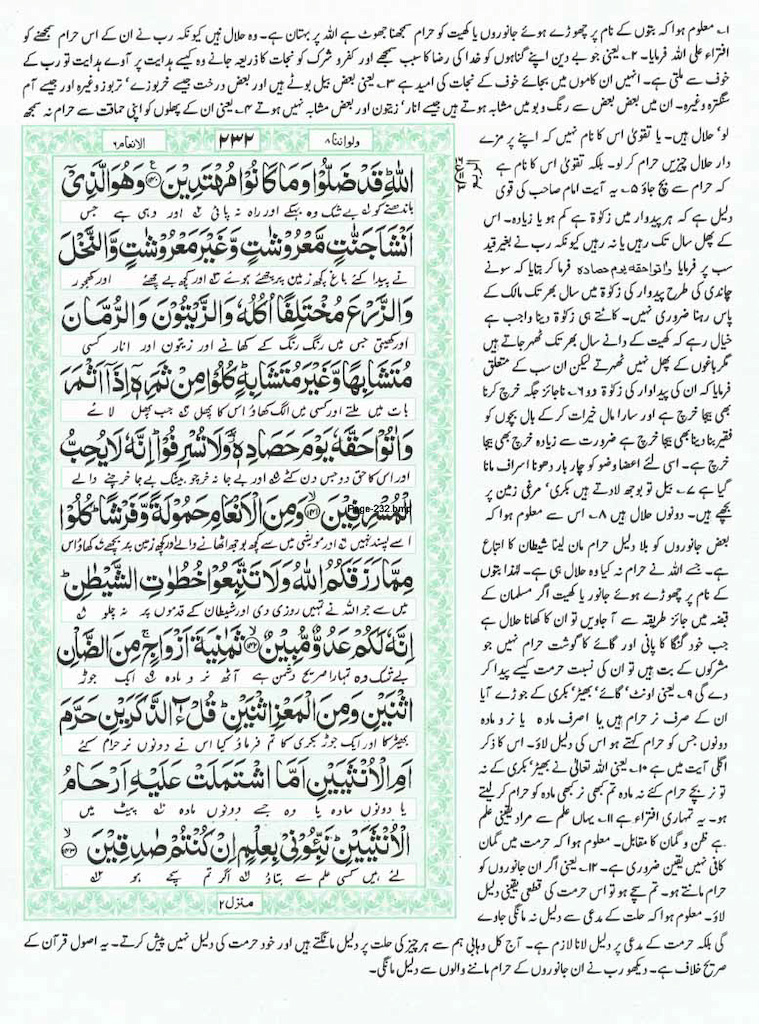 ۱۔ معلوم ہوا کہ بتوں کے نام پر چھوڑے ہوئے جانوروں یا کھیت کو حرام سمجھنا جھوٹ ہے اللہ پر بہتان ہے۔ وہ حلال ہیں کیونکہ رب نے ان کے اس حرام سمجھنے کو
افتراء علی اللہ فرمایا۔ ۲۔ یعنی جو بے دین اپنے گناہوں کو خدا کی رضا کا سبب سمجھے اور کفر و شرک کو نجات کا ذریعہ جانے وہ کیسے ہدایت پر آوے ہدایت تو رب کے
خوف سے ملتی ہے۔ انہیں ان کاموں میں بجائے خوف کے نجات کی امید ہے ۳۔ یعنی بعض بیل بوٹے ہیں اور بعض درخت جیسے خربوزے' تربوز وغیرہ اور جیسے آم
سنگترہ وغیرہ۔ ان میں بعض بعض سے رنگ و بو میں مشابہ ہوتے ہیں جیسے انار' زیتون اور بعض مشابہ نہیں ہوتے ۴۔ یعنی ان کے پھلوں کو اپنی حماقت سے حرام نہ سمجھ
ولواننا۸ ۲۳۲ الانعام۶
اللّٰهِ قَدْ ضَلُّوْا وَمَا كَانُوْا مُهْتَدِيْنَ ﴿۱۴۰﴾ وَهُوَ الَّذِيْٓ
باندھنے کو بے شک وہ بہکے اور راہ نہ پائی اور وہی ہے جس
اَنْشَاَ جَنّٰتٍ مَّعْرُوْشٰتٍ وَّغَيْرَ مَعْرُوْشٰتٍ وَّالنَّخْلَ
نے پیدا کئے باغ کچھ زمین پر چھئے ہوئے اور کچھ بے چھئے اور کھجور
وَالزَّرْعَ مُخْتَلِفًا اُكُلُهٗ وَالزَّيْتُوْنَ وَالرُّمَّانَ
اور کھیتی جس میں رنگ رنگ کے کھانے اور زیتون اور انار کسی
مُتَشَابِهًا وَّغَيْرَ مُتَشَابِهٍ كُلُوْا مِنْ ثَمَرِهٖٓ اِذَآ اَثْمَرَ
بات میں ملتے اور کسی میں الگ کھاؤ اس کا پھل جب پھل لائے
وَاٰتُوْا حَقَّهٗ يَوْمَ حَصَادِهٖ وَلَا تُسْرِفُوْا اِنَّهٗ لَا يُحِبُّ
اور اس کا حق دو جس دن کٹے اور بے جا نہ خرچو بیشک بے جا خرچنے والے
الْمُسْرِفِيْنَ ﴿۱۴۱﴾ وَمِنَ الْاَنْعَامِ حَمُوْلَةً وَّفَرْشًا كُلُوْا
Page-232.bmp
اسے پسند نہیں اور مویشی میں سے کچھ بوجھ اٹھانے والے اور کچھ زمین پر بچھے کھاؤ اس
مِمَّا رَزَقَكُمُ اللّٰهُ وَلَا تَتَّبِعُوْا خُطُوٰتِ الشَّيْطٰنِ
میں سے جو اللہ نے تمہیں روزی دی اور شیطان کے قدموں پر نہ چلو
اِنَّهٗ لَكُمْ عَدُوٌّ مُّبِيْنٌ ﴿۱۴۲﴾ ثَمٰنِيَةَ اَزْوَاجٍ مِنَ الضَّاْنِ
بے شک وہ تمہارا صریح دشمن ہے آٹھ نر و مادہ ایک جوڑ
اثْنَيْنِ وَمِنَ الْمَعْزِ اثْنَيْنِ قُلْ ءٰٓالذَّكَرَيْنِ حَرَّمَ
بھیڑ کا اور ایک جوڑ بکری کا تم فرماؤ کیا اس نے دونوں نر حرام کئے
اَمِ الْاُنْثَيَيْنِ اَمَّا اشْتَمَلَتْ عَلَيْهِ اَرْحَامُ
یا دونوں مادہ یا وہ جسے دونوں مادہ پیٹ میں
الْاُنْثَيَيْنِ نَبِّـُٔوْنِيْ بِعِلْمٍ اِنْ كُنْتُمْ صٰدِقِيْنَ ﴿۱۴۳﴾
لئے ہیں کسی علم سے بتاؤ اگر تم سچے ہو
منزل۲
الربع
لو' حلال ہیں۔ یا تقویٰ اس کا نام نہیں کہ اپنے پر مزے
دار حلال چیزیں حرام کر لو۔ بلکہ تقویٰ اس کا نام ہے
کہ حرام سے بچ جاؤ ۵۔ یہ آیت امام صاحب کی قوی
دلیل ہے کہ ہر پیداوار میں زکوٰۃ ہے کم ہو یا زیادہ۔ اس
کے پھل سال تک رہیں یا نہ رہیں کیونکہ رب نے بغیر قید
سب پر فرمایا واتواحقه یوم حصاده فرما کر بتایا کہ سونے
چاندی کی طرح پیداوار کی زکوٰۃ میں سال بھر تک مالک کے
پاس رہنا ضروری نہیں۔ کاٹتے ہی زکوٰۃ دینا واجب ہے
خیال رہے کہ کھیت کے دانے سال بھر تک ٹھہر جاتے ہیں
مگر باغوں کے پھل نہیں ٹھہرتے لیکن ان سب کے متعلق
فرمایا کہ ان کی پیداوار کی زکوٰۃ دو ۶۔ ناجائز جگہ خرچ کرنا
بھی بیجا خرچ ہے اور سارا مال خیرات کر کے بال بچوں کو
فقیر بنا دینا بھی بیجا خرچ ہے ضرورت سے زیادہ خرچ بھی بیجا
خرچ ہے۔ اسی لئے اعضا وضو کو چار بار دھونا اسراف مانا
گیا ہے ۷۔ بیل تو بوجھ لادتے ہیں بکری' مرغی زمین پر
بچھے ہیں۔ دونوں حلال ہیں ۸۔ اس سے معلوم ہوا کہ
بعض جانوروں کو بلا دلیل حرام مان لینا شیطان کا اتباع
ہے۔ جسے اللہ نے حرام نہ کیا وہ حلال ہی ہے۔ لہٰذا بتوں
کے نام پر چھوڑے ہوئے جانور یا کھیت اگر مسلمان کے
قبضہ میں جائز طریقہ سے آ جاویں تو ان کا کھانا حلال ہے
جب خود گنگا کا پانی اور گائے کا گوشت حرام نہیں جو
مشرکوں کے بت ہیں تو ان کی نسبت حرمت کیسے پیدا کر
دے گی ۹۔ یعنی اونٹ' گائے' بھیڑ' بکری کے جوڑے آیا
ان کے صرف نر حرام ہیں یا صرف مادہ یا نر و مادہ
دونوں جس کو حرام کہتے ہو اس کی دلیل لاؤ۔ اس کا ذکر
اگلی آیت میں ہے ۱۰۔ یعنی اللہ تعالیٰ نے بھیڑ' بکری کے نہ
تو نر بچے حرام کئے نہ مادہ تم کبھی نر کبھی مادہ کو حرام کر لیتے
ہو۔ یہ تمہاری افتراء ہے ۱۱۔ یہاں علم سے مراد یقینی علم
ہے ظن و گمان کا مقابل۔ معلوم ہوا کہ حرمت میں گمان
کافی نہیں یقین ضروری ہے۔ ۱۲۔ یعنی اگر ان جانوروں کو
حرام مانتے ہو۔ تم سچے ہو تو اس حرمت کی قطعی یقینی دلیل
لاؤ۔ معلوم ہوا کہ حلت کے مدعی سے دلیل نہ مانگی جاوے
گی بلکہ حرمت کے مدعی پر دلیل لانا لازم ہے۔ آج کل وہابی ہم سے ہر چیز کی حلت پر دلیل مانگتے ہیں اور خود حرمت کی دلیل نہیں پیش کرتے۔ یہ اصول قرآن کے
صریح خلاف ہے۔ دیکھو رب نے ان جانوروں کے حرام ماننے والوں سے دلیل مانگی۔